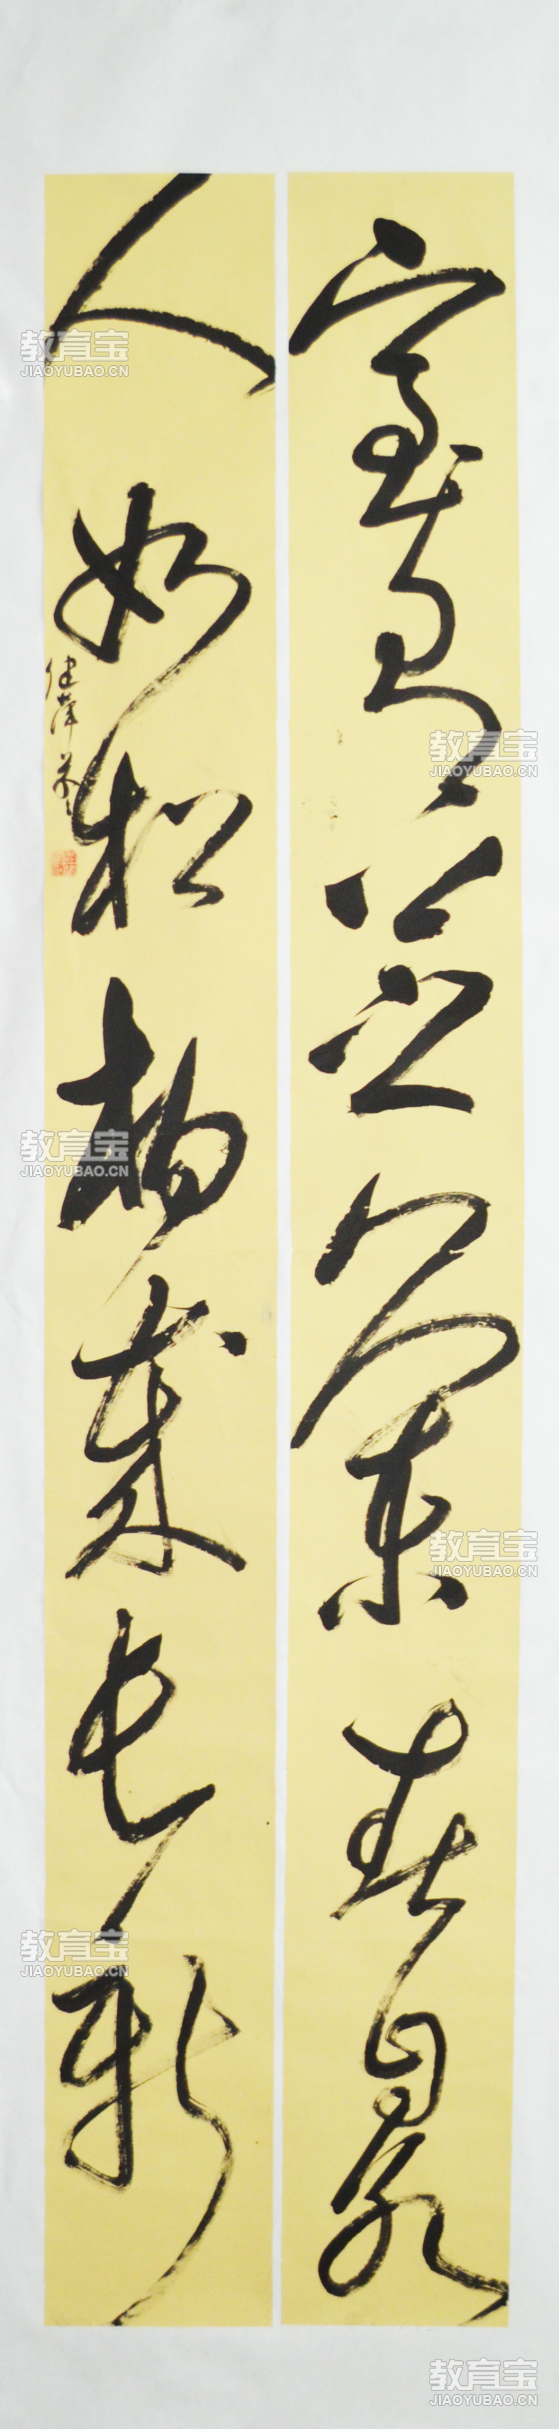 室有芝兰春自永
人如松柏岁长新
教育宝
JIAOYUBAO.CN
教育宝
JIAOYUBAO.CN
教育宝
JIAOYUBAO.CN
教育宝
JIAOYUBAO.CN
教育宝
JIAOYUBAO.CN
教育宝
JIAOYUBAO.CN